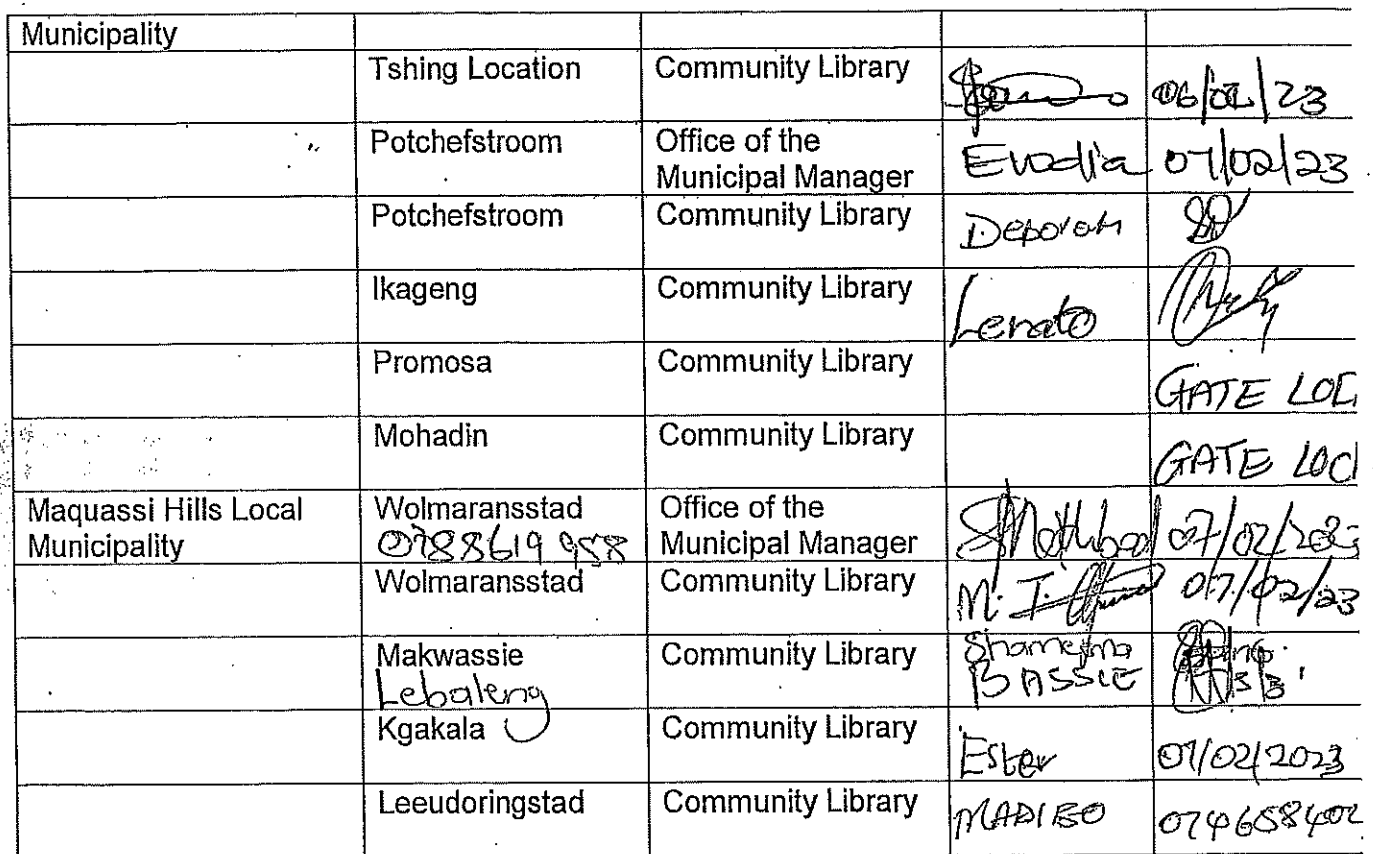 Municipality
Tshing Location Community Library 06/02/23
Potchefstroom Office of the Evodia 07/02/23
Municipal Manager
Potchefstroom Community Library Deborah
Ikageng Community Library Lerato
Promosa Community Library GATE LOC
Mohadin Community Library GATE LOC
Maquassi Hills Local Wolmaransstad Office of the
Municipality 0788619 958 Municipal Manager 07/02/2023
Wolmaransstad Community Library M. T. 07/02/23
Makwassie Community Library
Lebaleng BASSIE
Kgakala Community Library Ester 07/02/2023
Leeudoringstad Community Library MADIBO